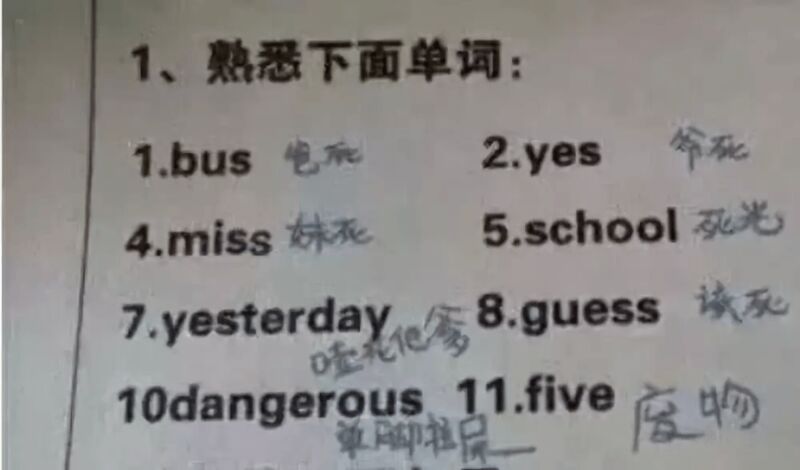 1、熟悉下面单词：
1.bus 爸死 2.yes 爷死
4.miss 妹死 5.school 死光
7.yesterday 8.guess 该死
噎死他爹
10dangerous 11.five 废物
单脚拉屎